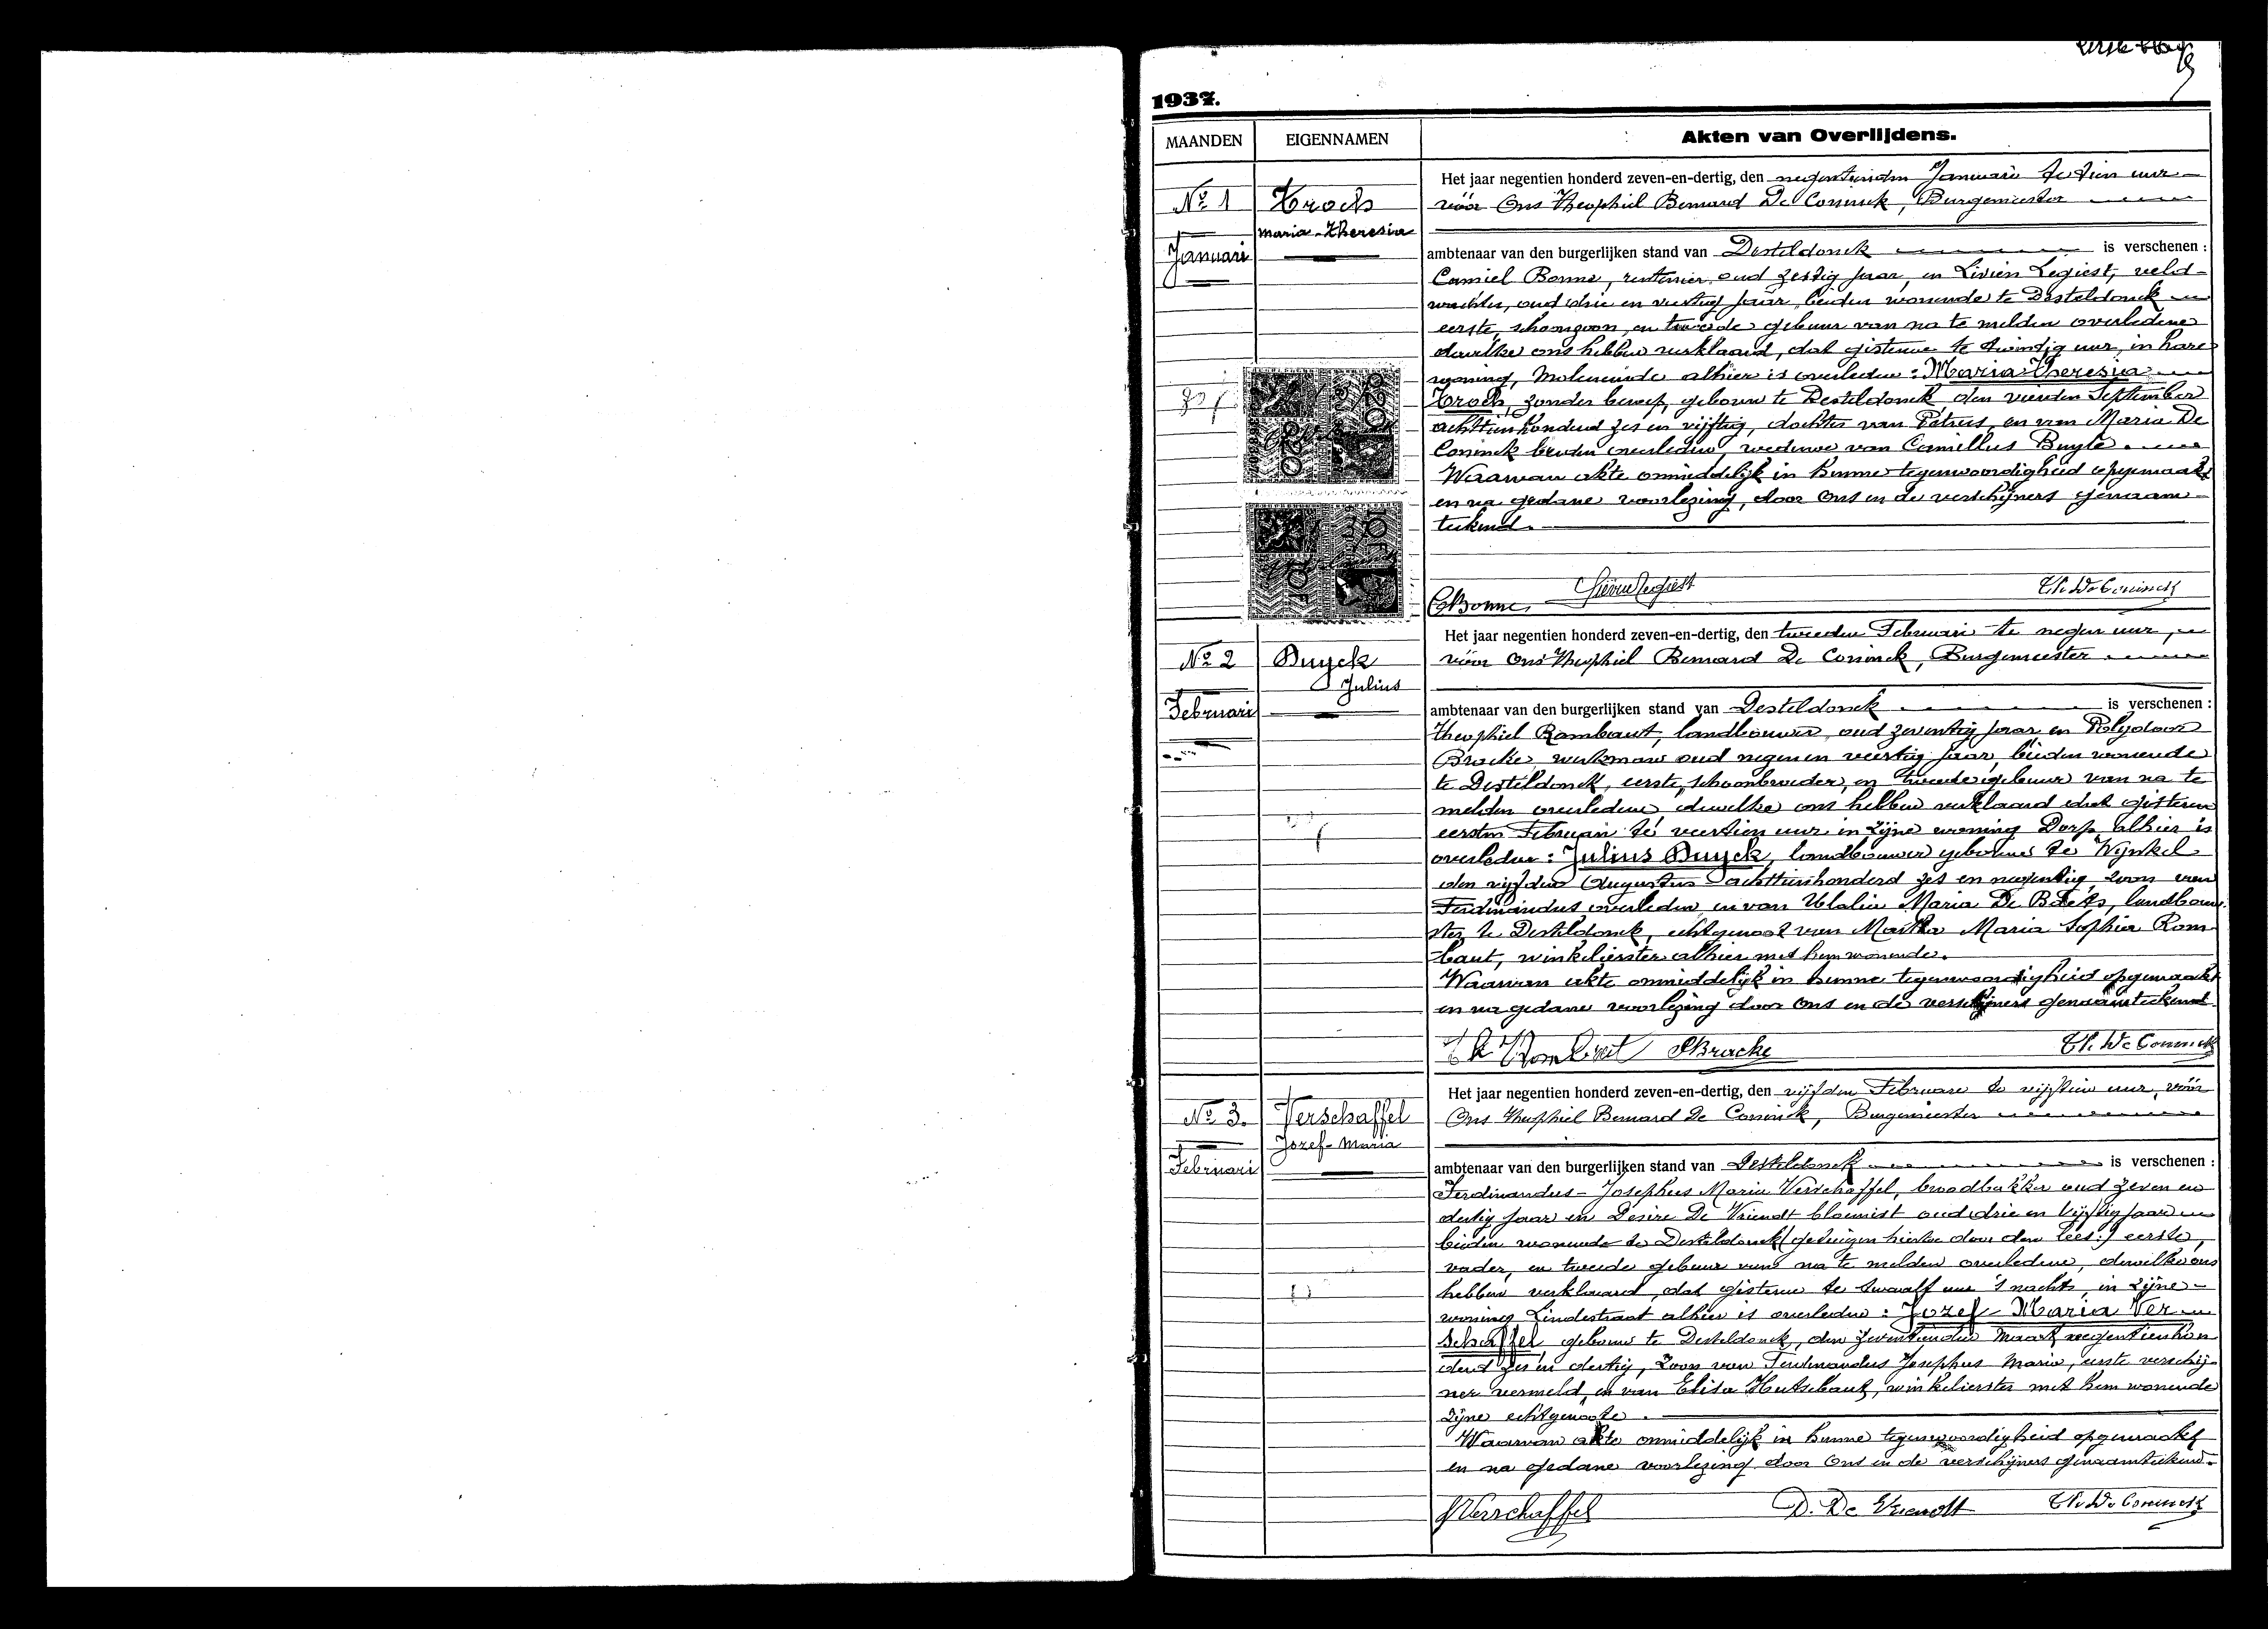 1937.
MAANDEN
EIGENNAMEN
Akten van Overlijdens.
No 1
Januari
Troch
Maria-Theresia
Het jaar negentien honderd zeven-en-dertig, den negentienden Januari te tien uur
vóór Ons Theophiel Bernard De Coninck, Burgemeester
ambtenaar van den burgerlijken stand van Desteldonck is verschenen :
Camiel Bonne, rentenier, oud zestig jaar, en Livien Legiest, veld-
wachter, oud drie en veertig jaar, beiden wonende te Desteldonck
eerste, schoonzoon, en tweede gebuur van na te melden overledene
dewelke ons hebben verklaard, dat gisteren te twintig uur, in hare
woning, Moleneinde alhier is overleden : Maria Theresia
Troch, zonder beroep, geboren te Desteldonck den vierden September
achttienhonderd zes en vijftig, dochter van Petrus, en van Maria De
Coninck beiden overleden, weduwe van Camillus Buyle
Waarvan akte onmiddelijk in hunne tegenwoordigheid opgemaakt
en na gedane voorlezing, door Ons en de verschijners genaam-
teekend.
CBonne
Livien Legiest
Th. De Coninck
No 2
Februari
Duyck
Julius
Het jaar negentien honderd zeven-en-dertig, den tweeden Februari te negen uur,
vóór Ons Theophiel Bernard De Coninck, Burgemeester
ambtenaar van den burgerlijken stand van Desteldonck is verschenen :
Theophiel Rombaut, landbouwer, oud zeventig jaar, en Polydoor
Bracke, werkman oud negen en veertig jaar, beiden wonende
te Desteldonck, eerste, schoonbroeder, en tweede gebuur van na te
melden overledene, dewelke ons hebben verklaard dat gisteren
eersten Februari te veertien uur in zijne woning Dorp alhier is
overleden : Julius Duyck, landbouwer geboren te Wynkel
den vijfden Augustus achttienhonderd zes en negentig, zoon van
Ferdinandus overleden en van Ulalia Maria De Baets, landbouw-
ster, te Desteldonck, echtgenoot van Martha Maria Sophia Rom-
baut, winkelierster alhier met hem wonende.
Waarvan akte onmiddelijk in hunne tegenwoordigheid opgemaakt
en na gedane voorlezing door Ons en de verschijners genaamteekend
Th Rombaut
PBracke
Th. De Coninck
No 3.
Februari
Verschaffel
Jozef-Maria
Het jaar negentien honderd zeven-en-dertig, den vijfden Februari te vijftien uur, vóór
Ons Theophiel Bernard De Coninck, Burgemeester
ambtenaar van den burgerlijken stand van Desteldonck is verschenen :
Ferdinandus-Josephus Maria Verschaffel, broodbakker oud zeven en
dertig jaar en Desire De Vriendt bloemist oud drie en vijftig jaar
beiden wonende te Desteldonck (getuigen hiertoe door den lees:) eerste,
vader, en tweede gebuur van na te melden overledene, dewelke ons
hebben verklaard, dat gisteren te twaalf uur 's nachts, in zijne
woning Lindestraat alhier is overleden : Jozef-Maria Ver-
schaffel, geboren te Desteldonck, den zeventienden Maart negentienhon
derd zes en dertig, zoon van Ferdinandus Josephus Maria, eerste verschij-
ner vermeld, en van Elisa Hutsebaut, winkelierster met hem wonende
zijne echtgenoote.
Waarvan akte onmiddelijk in hunne tegenwoordigheid opgemaakt
en na gedane voorlezing door Ons en de verschijners genaamteekend.
Verschaffel
D. De Vriendt
Th. De Coninck